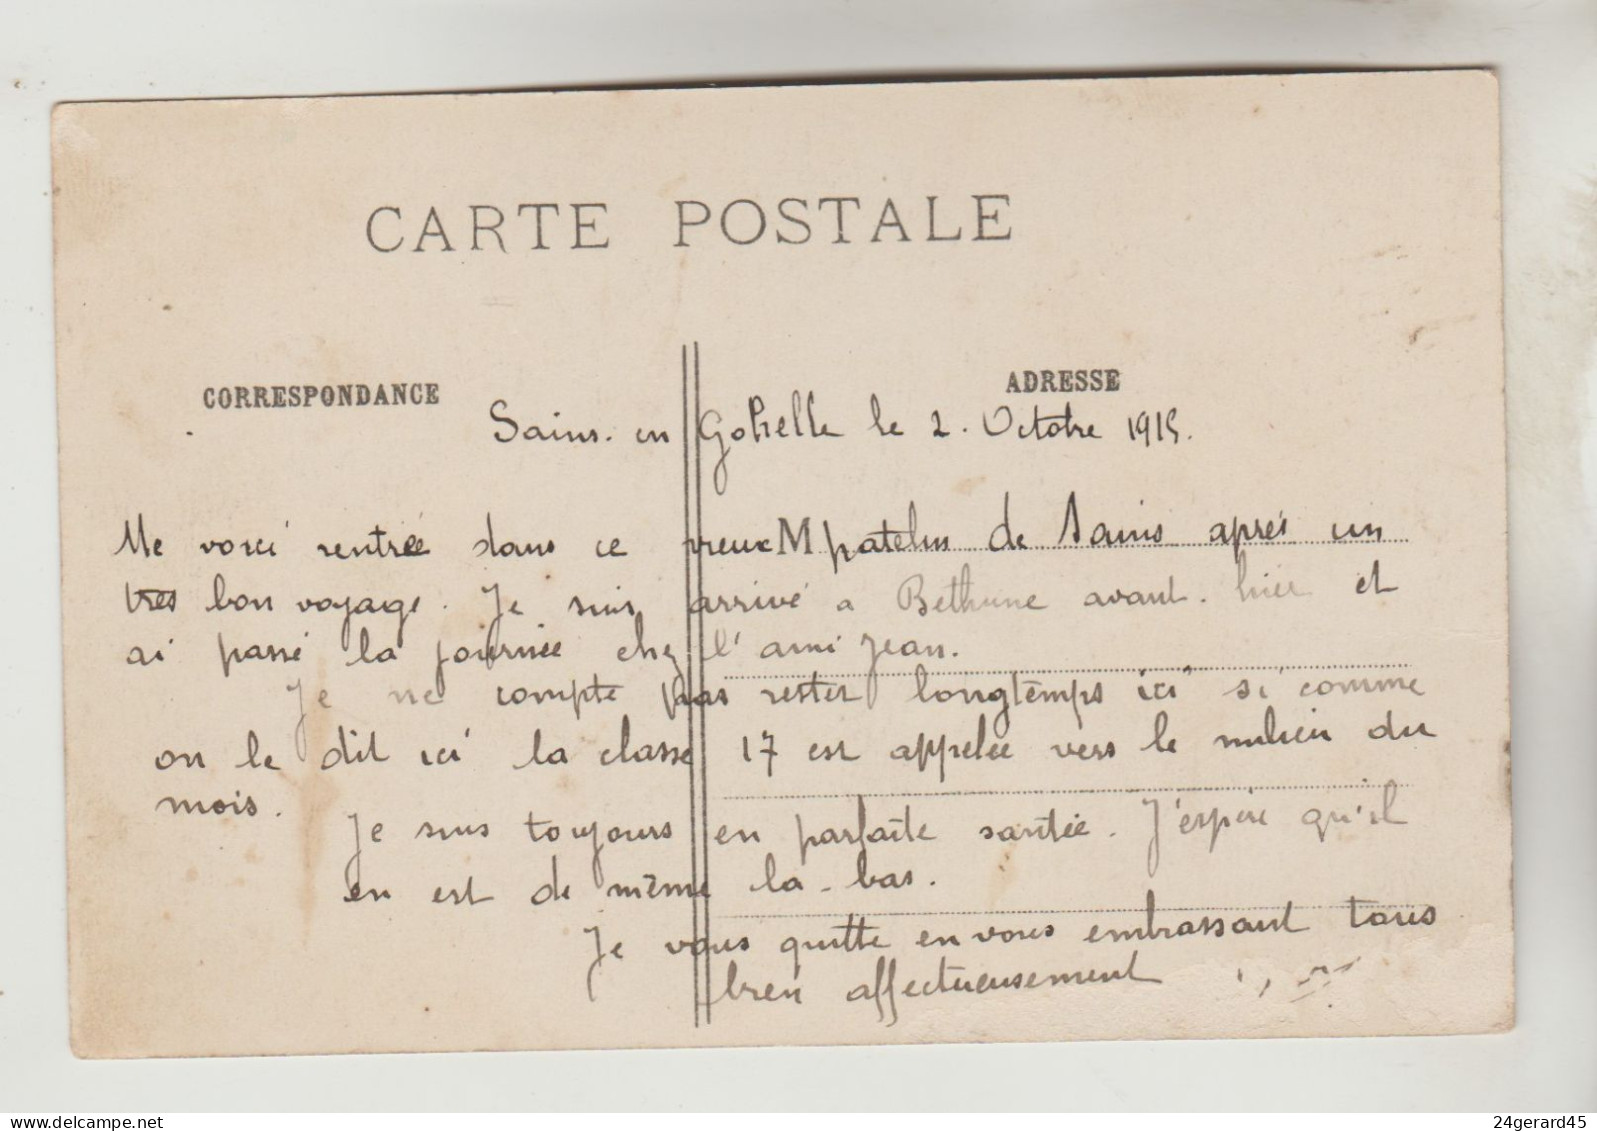 CARTE POSTALE
CORRESPONDANCE
ADRESSE
Sains. en Gohelle le 2. Octobre 1915.
Me voici rentrée dans ce vieux M patelin de Sains après un
très bon voyage. Je suis arrivé a Bethune avant. hier et
ai passé la journée chez l'ami Jean.
Je ne compte pas rester longtemps ici si comme
on le dit ici la classe 17 est appelée vers le milieu du
mois.
Je suis toujours en parfaite santée. J'espère qu'il
en est de même la-bas.
Je vous quitte en vous embrassant tous
bien affectueusement
www.delcampe.net
24gerard45